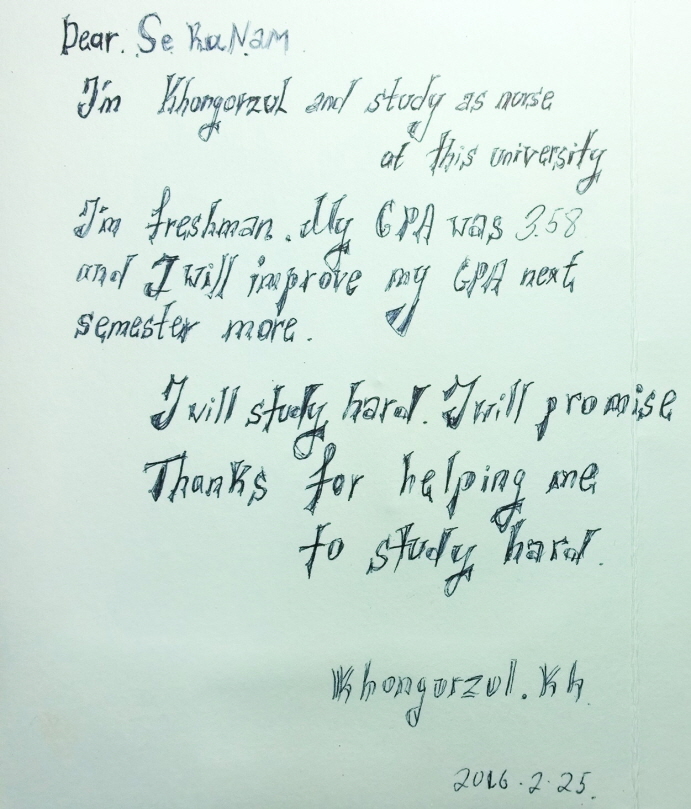 Dear. Se Ra Nam
I'm Khongorzul and study as nurse
at this university
I'm freshman. My GPA was 3.58
and I will improve my GPA next
semester more.
I will study hard. I will promise
Thanks for helping me
to study hard.
Khongorzul. Kh.
2016.2.25.